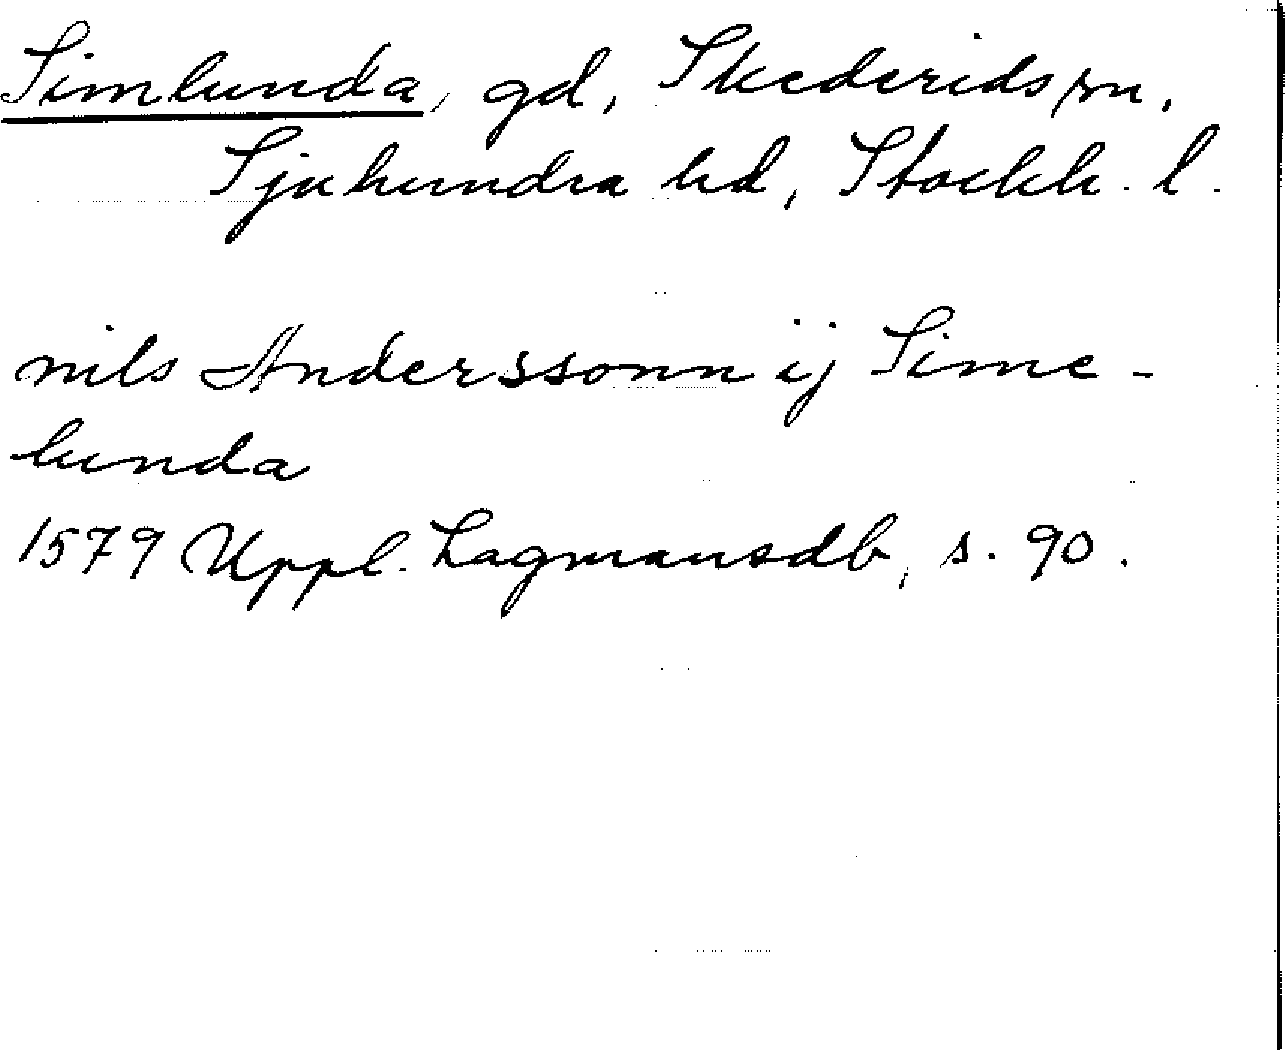 Simlunda, gd, Skederids sn,
Sjuhundra hd, Stockh. l.
nils Anderssonn ij Sime-
lunda
1579 Uppl. Lagmansdb, s. 90.